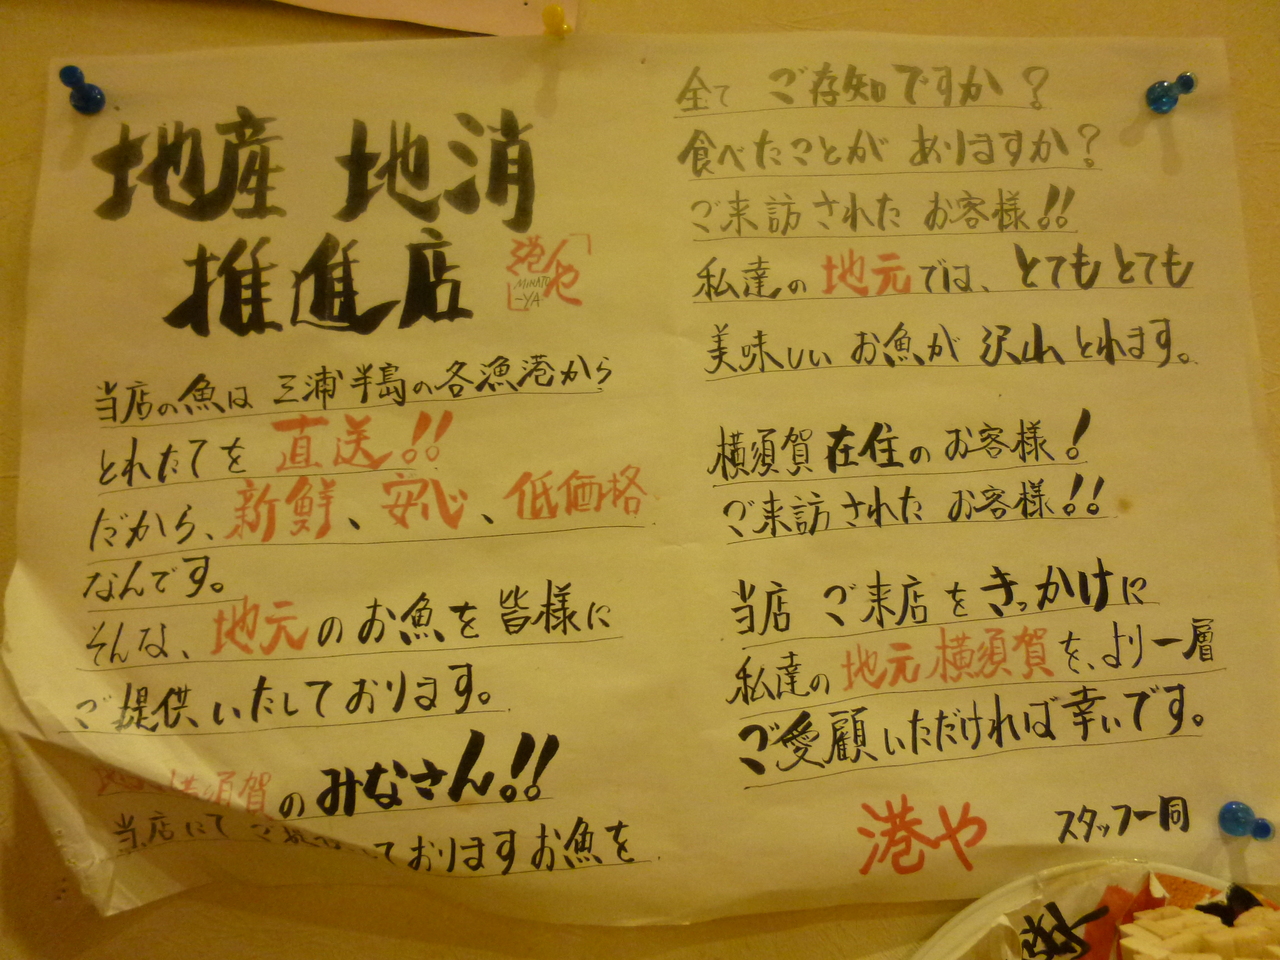 地産 地消
推進店
「港や」
MINATO
-YA
当店の魚は 三浦半島の各漁港から
とれたてを 直送!!
だから、新鮮、安心、低価格
なんです。
そんな、地元のお魚を皆様に
ご提供いたしております。
横須賀のみなさん!!
当店にて ておりますお魚を
全て ご存知ですか?
食べたことが ありますか?
ご来訪された お客様!!
私達の 地元では、とてもとても
美味しい お魚が 沢山 とれます。
横須賀在住の お客様!
ご来訪された お客様!!
当店 ご来店をきっかけに
私達の 地元横須賀を、より一層
ご愛顧いただければ幸いです。
港や スタッフ一同